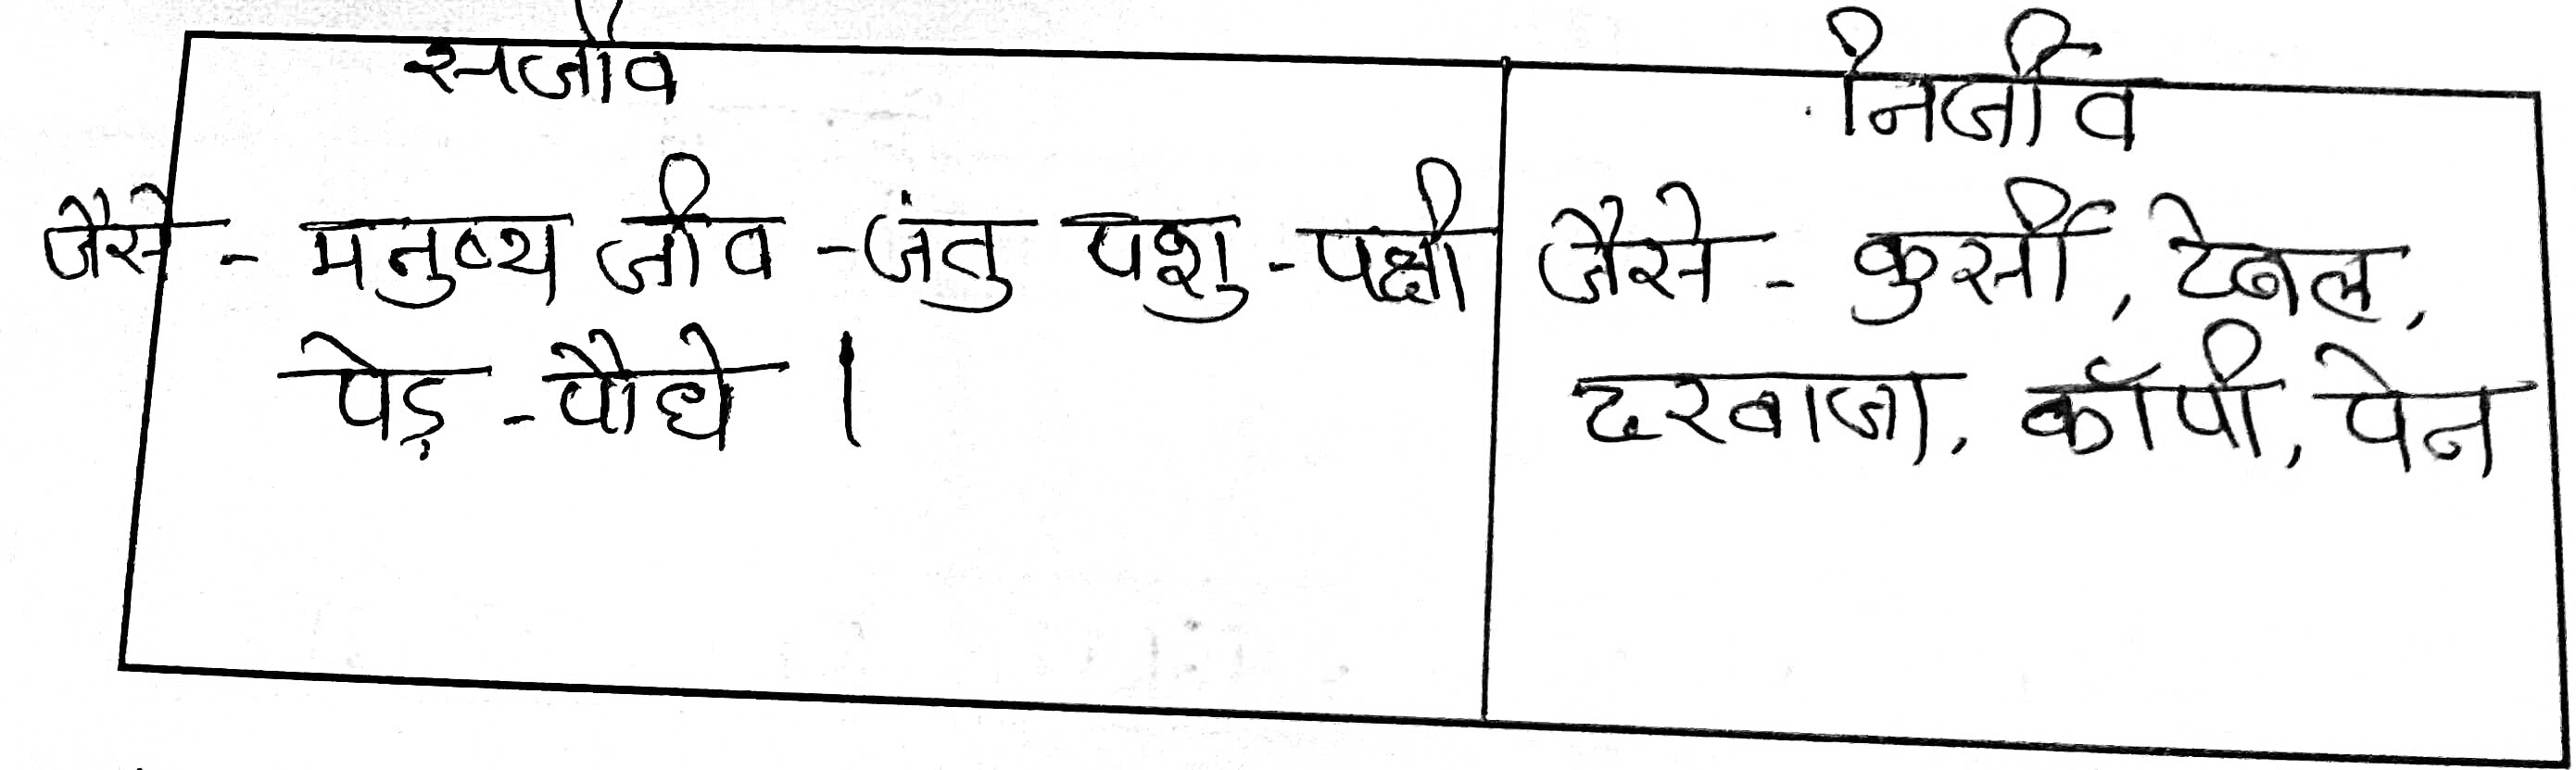 सजीव
जैसे - मनुष्य जीव -जंतु पशु -पक्षी
पेड़ -पौधे ।
निर्जीव
जैसे - कुर्सी, टेबल,
दरवाजा, कॉपी, पेन